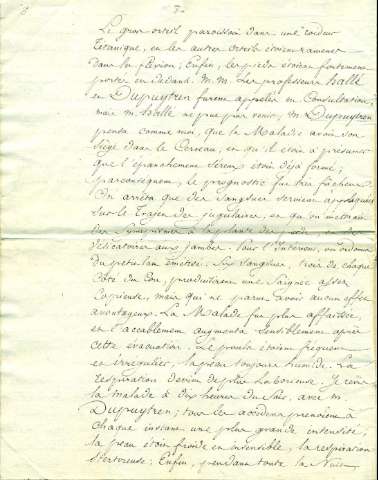 3.
Le gros orteil paraissoit dans une roideur
Tétanique, et les autres orteils étoient ramenés
dans la flexion; Enfin, les pieds étoient fortement
portés en dedans. M.M. Les professeurs hallé
et Dupuytren furent appellés en Consultation,
mais M. hallé ne put pas venir, M. Dupuytren
pensa comme moi, que la Maladie avoit son
siège dans le Cerveau, et qu'il étoit à présumer
que l'épanchement séreux étoit déjà formé;
par conséquent, le prognostic fut très fâcheux.
On arrêta que des Sangsues seroient appliquées
sur le Trajet des jugulaires, et qu'on mettroit
des Synapismes à la plante des pieds, et des
vésicatoires aux jambes. à l'Intérieur, on ordonna
du petit lait émétisé. Six Sangsues, trois de chaque
côté du Cou, produisirent une Saignée assez
Copieuse, mais qui ne parut avoir aucun effet
avantageux. La Malade fut plus affaissée,
et l'accablement augmenta sensiblement après
cette évacuation. Le pouls étoit fréquent
et irrégulier, la peau toujours humide. La
respiration devint de plus laborieuse. Je revis
la malade à dix heures du soir, avec M.
Dupuytren; tous les accidens prenoient à
chaque instant une plus grande intensité,
la peau étoit froide et insensible, la respiration
Stertoreuse; Enfin, pendant toute la Nuit